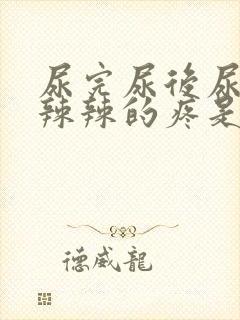 尿完尿後尿
辣辣的疼是
德威龍